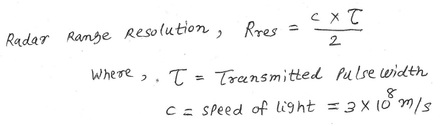 Radar Range Resolution, Rres = c × τ / 2
Where, . τ = Transmitted Pulse width
c = speed of light = 3 × 10⁸ m/s